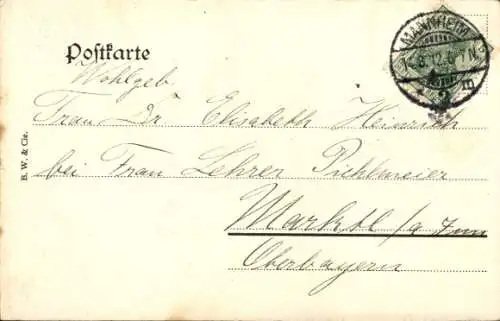 Postkarte
MANNHEIM
Wohlgeb.
Frau Dr Elisabeth Heinrich
bei Frau Lehrer Pichlmeier
Marktl / a Inn
Oberbayern
B. W. & Cie.